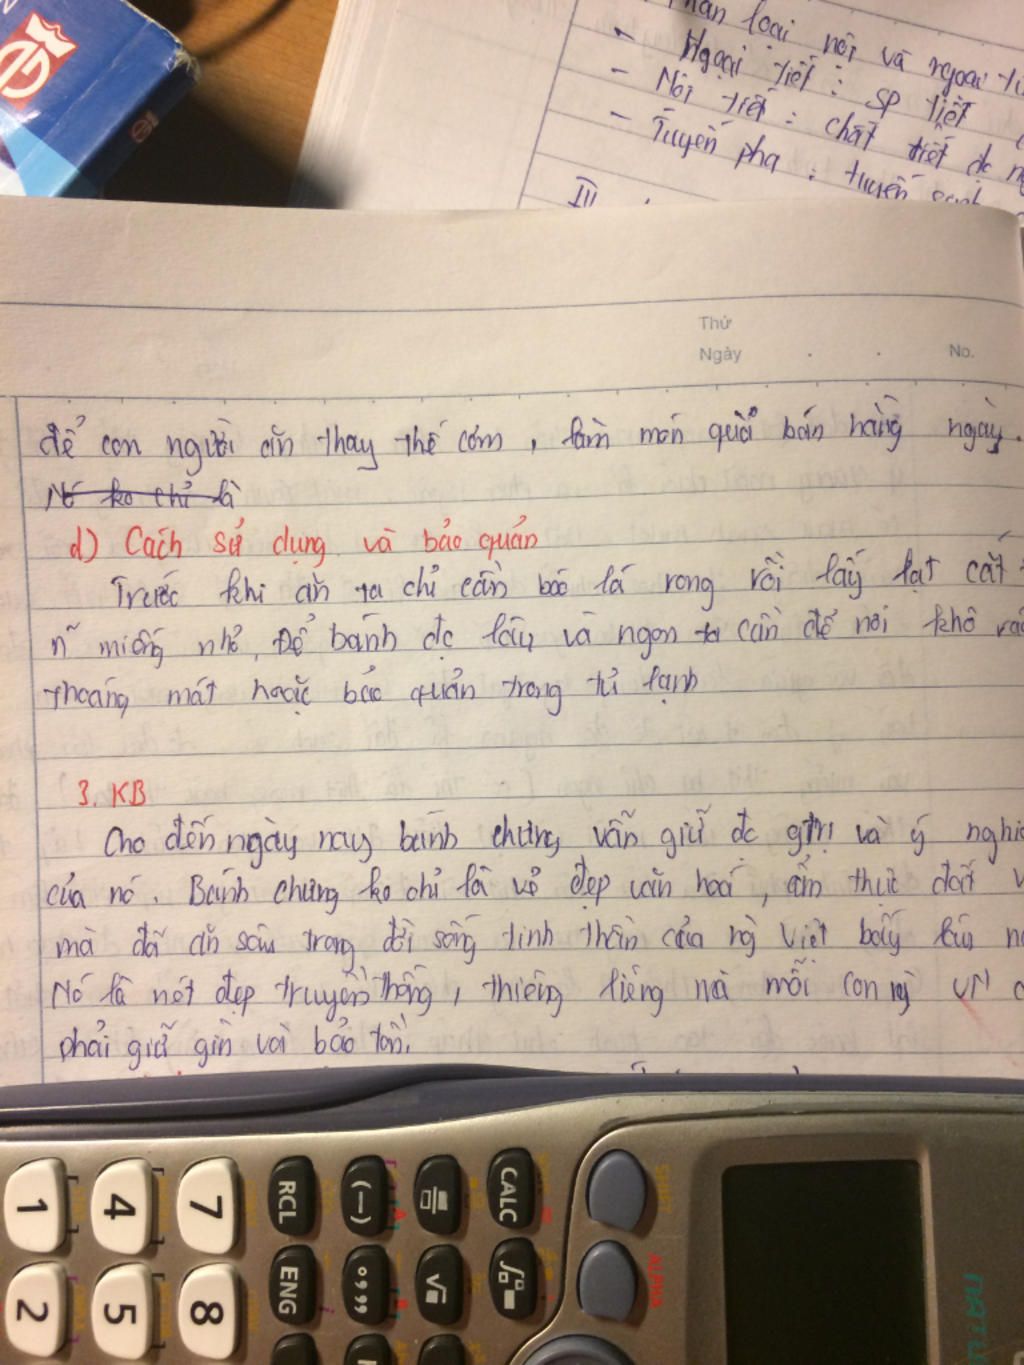 Phân loại nội và ngoại
- Ngoại tiết : SP tiết
- Nội tiết : chất tiết đc
- Tuyến pha : tuyến
III
Thứ
Ngày
No.
để con người ăn thay thế cơm, làm món quà bán hàng ngày.
Nó ko chỉ là
d) Cách sử dụng và bảo quản
Trước khi ăn ta chỉ cần bóc lá rong rồi lấy lạt cắt
n~ miếng nhỏ, Để bánh đc lâu và ngon ta cần để nơi khô
thoáng mát hoặc bảo quản trong tủ lạnh
3. KB
Cho đến ngày nay bánh chưng vẫn giữ đc gtrị và ý
của nó. Bánh chưng ko chỉ là vẻ đẹp văn hoá, ẩm thực
mà đã ăn sâu trong đời sống tinh thần của ng Việt bấy lâu
Nó là nét đẹp truyền thống, thiêng liêng mà mỗi con ng VN
phải giữ gìn và bảo tồn.
CALC
SHIFT
ALPHA
RCL
(-)
ENG
° ' ''
√
7
4
1
8
5
2